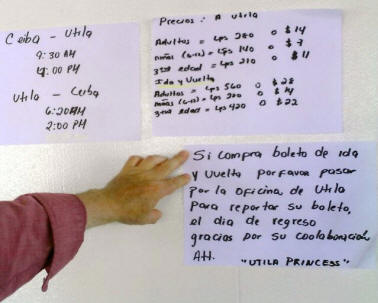 Ceiba - Utila
9:30 AM
4:00 PM
Utila - Ceiba
6:20 AM
2:00 PM
Precios: A Utila
Adultos = Lps 280 o $ 14
niños (6-12) = Lps 140 o $ 7
3era edad = Lps 210 o $ 11
Ida y Vuelta
Adultos = Lps 560 o $ 28
niños (6-12) = Lps 280 o $ 14
3era edad = Lps 420 o $ 22
Si compra boleto de ida
y Vuelta por favor pasar
por la oficina de Utila
para reportar su boleto,
el dia de regreso
gracias por su coolaboracion
Att.
"UTILA PRINCESS"